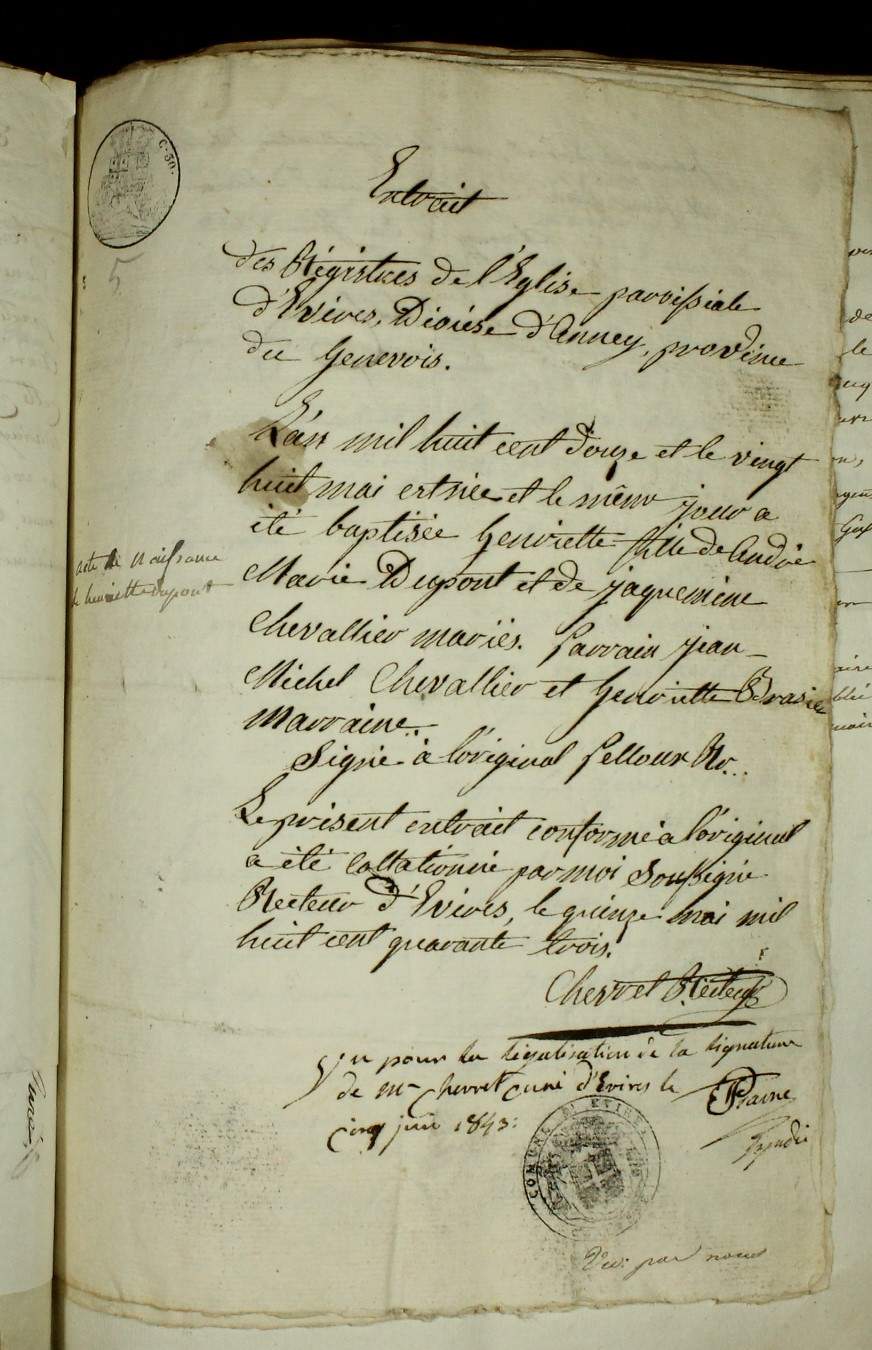 C. 50.
5
Extrait
des Régistres de l'Eglise parroissiale
d'Evires, Diocèse d'Annecy, province
du Genevois.
L'an mil huit cent douze et le vingt
huit mai est née et le même jour a
été baptisée Henriette fille de André
Marie Dupont et de Jaquemine
Chevallier mariés. Parrain Jean-
Michel Chevallier et Henriette
Marraine.
Signé à l'original Pelloux Rr...
Le présent extrait conforme à l'original
a été collationné par moi soussigné
Recteur d'Evires, le quinze mai mil
huit cent quarante trois.
Chervet Recteur
acte de naissance
de henriette dupont
Vu pour la légalisation de la signature
de Mr Chervet curé d'Evires le
cinq juin 1843:
Syndic
COMUNE DI EVIRES
Vu: par nous